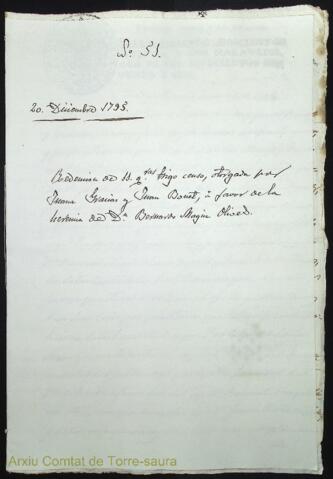 Nº 51.
20. Diciembre 1795.
Redencion de 11. qras trigo censo, otorgada por
Juana Gracias y Juan Bonet, à favor de la
herencia de Dn. Bernardo Magin Olives.
Arxiu Comtat de Torre-saura